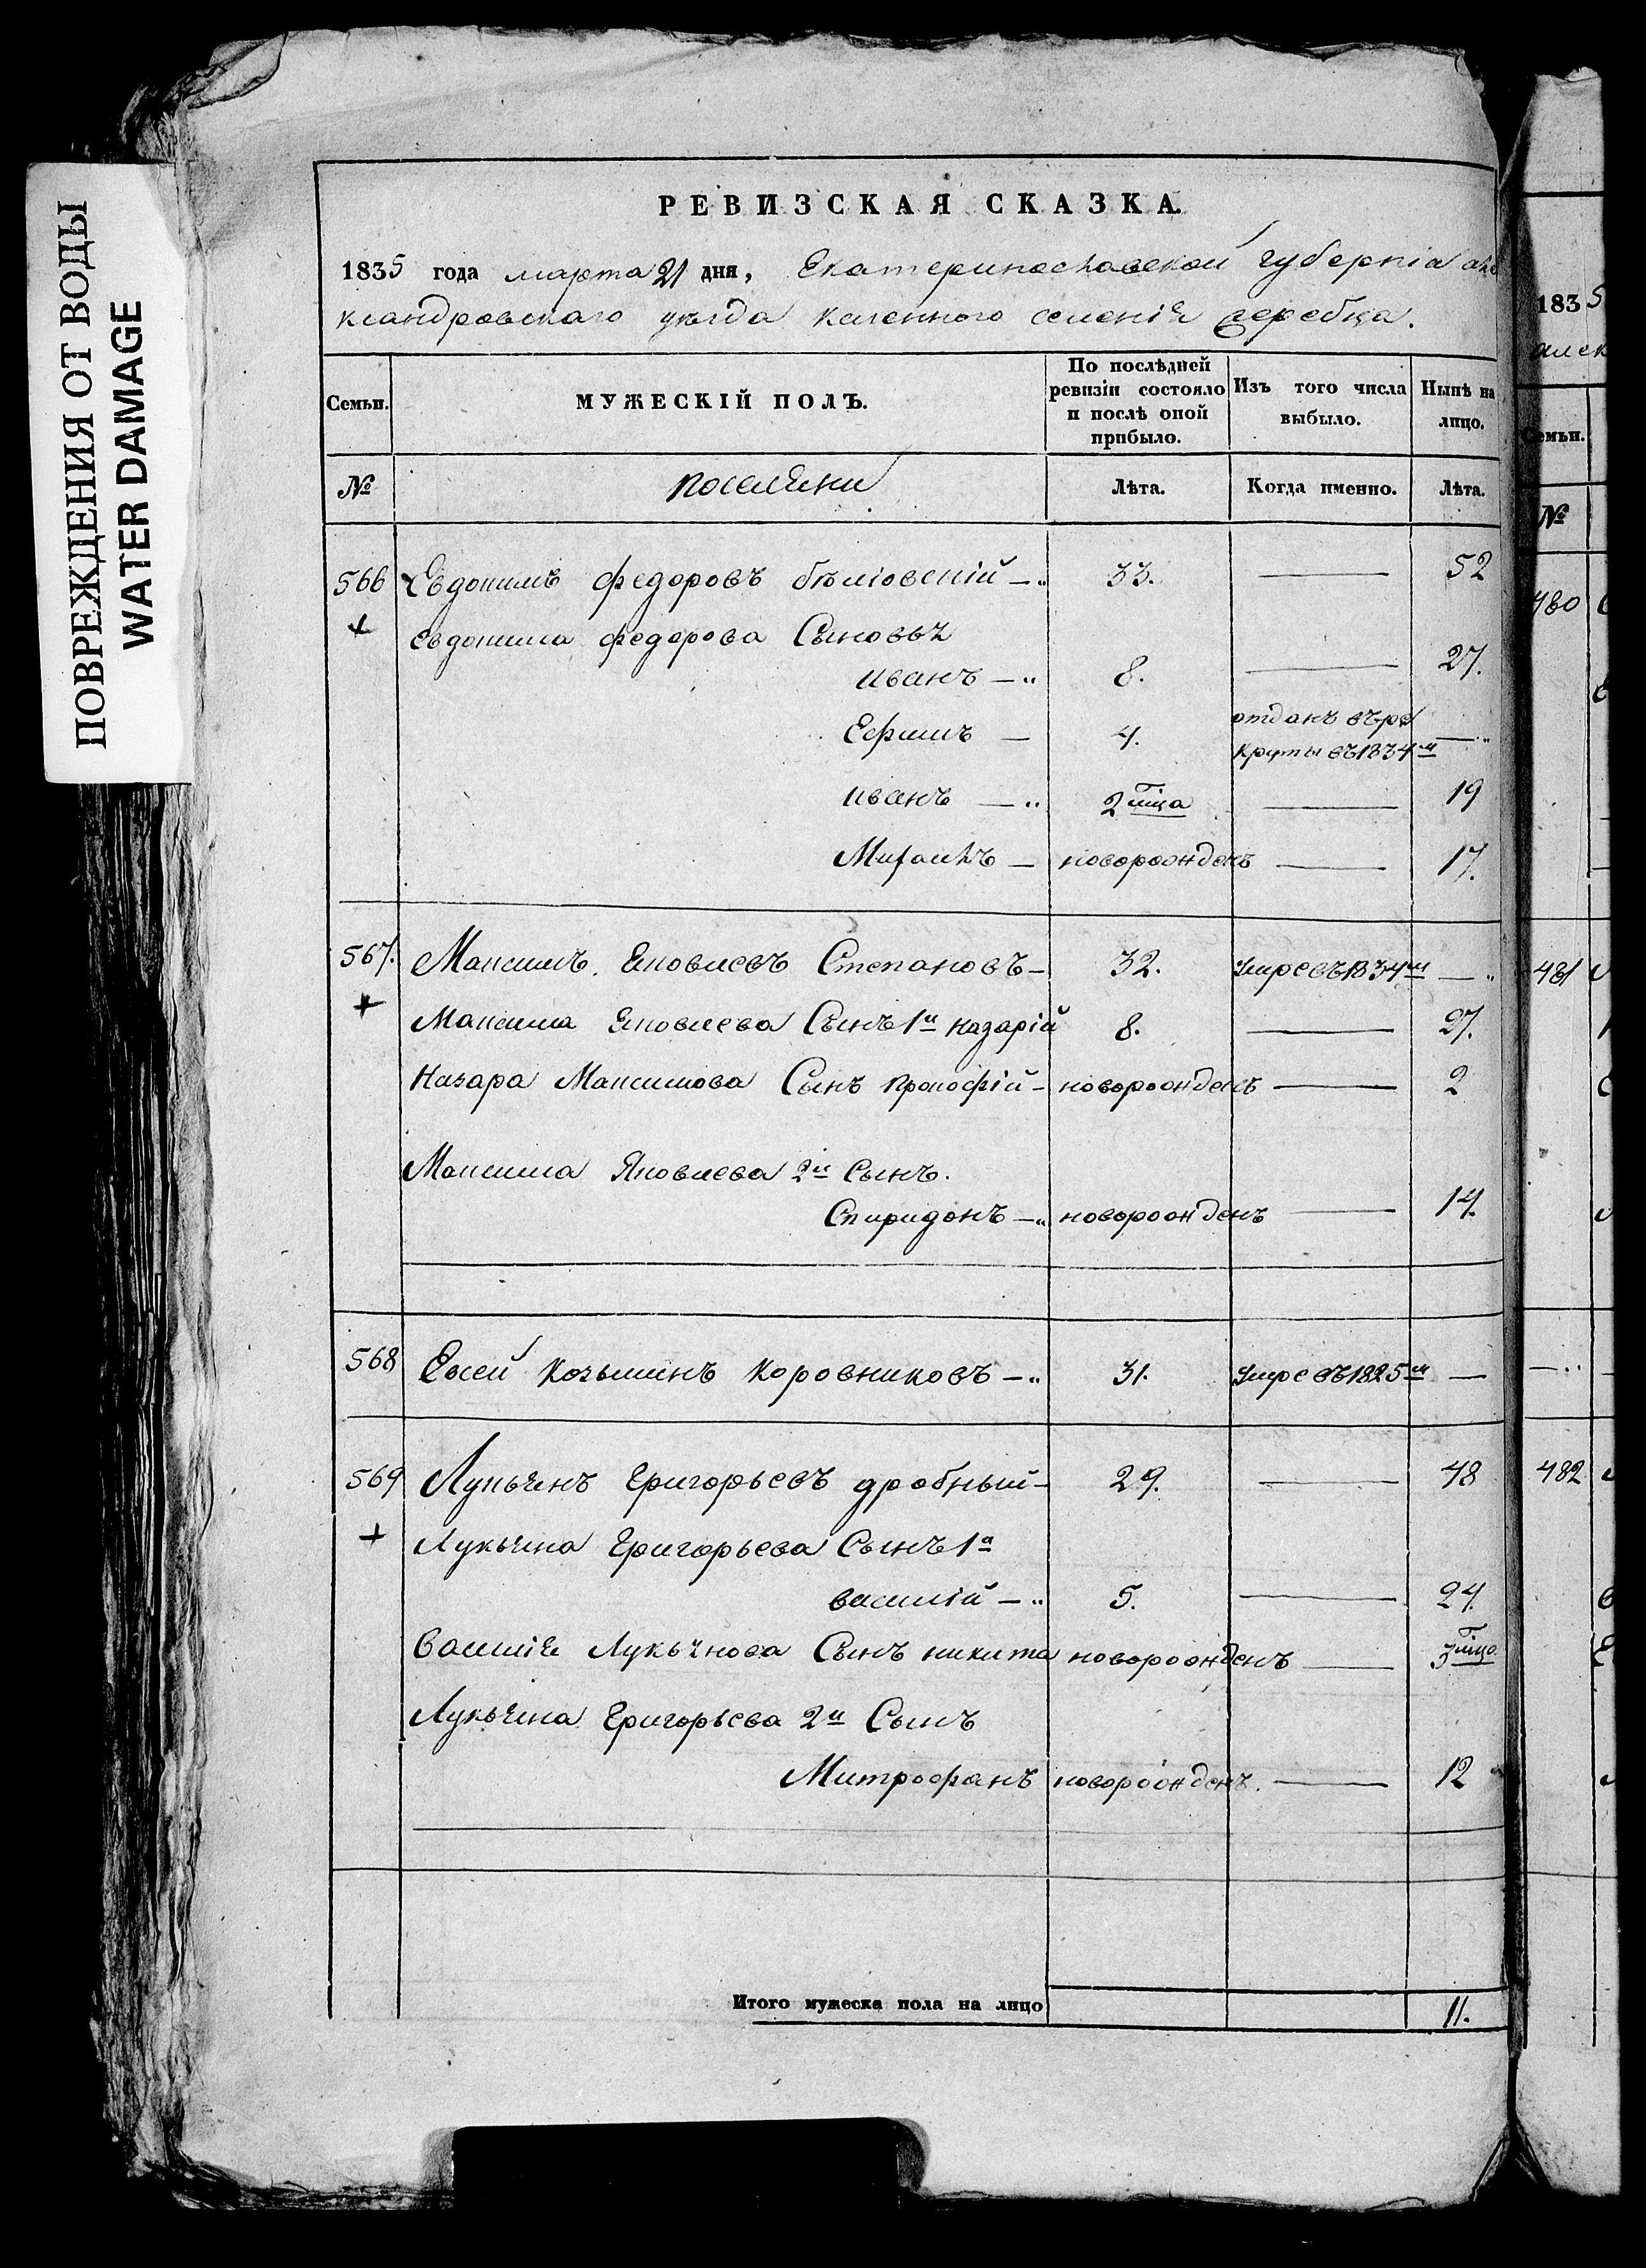 ПОВРЕЖДЕНИЯ ОТ ВОДЫ
WATER DAMAGE
РЕВИЗСКАЯ СКАЗКА.
1835 года марта 21 дня, Екатеринославской губерніи але
ксандровскаго уѣзда казенного селенія жеребца.
Семьи.
МУЖЕСКІЙ ПОЛЪ.
По послѣдней ревизіи состояло и послѣ оной прибыло.
Изъ того числа выбыло.
Нынѣ на лицо.
№ поселяни Лѣта. Когда именно. Лѣта.
566 Евдокимъ федоровъ 33. — 52
+ евдокима федорова Сыновья
иванъ — 8. — 27.
Ефимъ — 4. отданъ въ ре
круты въ 1834м —
иванъ — 2 мца — 19
Михаилъ — новорожденъ — 17.
567. Максимъ Яковлевъ Степановъ — 32. умре въ 1834м —
+ Максима Яковлева Сынъ 1й назарій 8. — 27.
Назара Максимова Сынъ прокофій — новорожденъ — 2
Максима Яковлева 2й Сынъ.
Спиридонъ — новорожденъ — 14.
568 Евсей козьминъ коровниковъ — 31. умре въ 1825м —
569 Лукьянъ Григорьевъ дробный — 29. — 48
+ Лукьяна Григорьева Сынъ 1й
василій — 5. — 24.
Василія Лукьянова Сынъ никита новорожденъ — 3 мца
Лукьяна Григорьева 2й Сынъ
Митрофанъ новорожденъ. — 12
Итого мужеска пола на лицо 11.
1835
алек
Семьи.
№
480
481
482